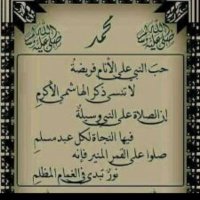 صلى الله عليه وسلم
محمد
صلى الله عليه وسلم
حب النبي على الأنام فريضة
لا تنسى ذكر الهاشمي الأكرم
إن الصلاة على النبي وسيلة
فيها النجاة لكل عبد مسلم
صلوا على القمر المنير فإنه
نور تبدى في الغمام المظلم